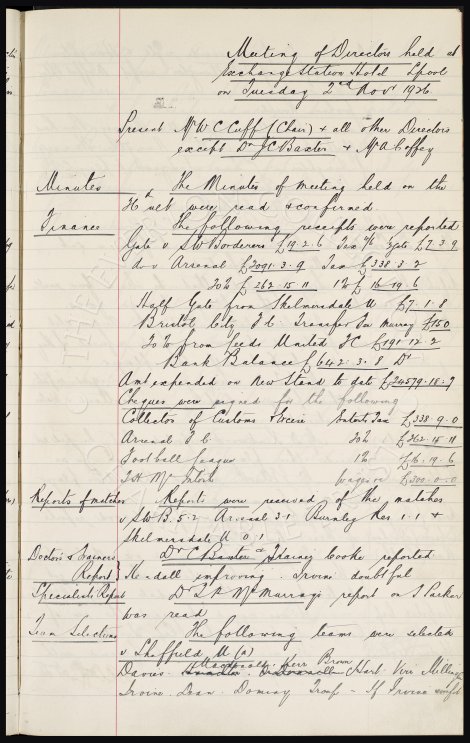 Meeting of Directors held at
Exchange Station Hotel Lpool
on Tuesday 2nd Novr 1926
Present Mr W C Cuff (Chair) & all other Directors
except Dr J C Baxter & Mr A Coffey
Minutes
The Minutes of meeting held on the
ult were read & confirmed
Finance
The following receipts were reported
Gate v S W Borderers £19.2.6 Tax Gate £7.3.9
do v Arsenal £2091.3.9 Tax £338.3.2
20% £262.15.11 1% £16.19.6
Half Gate from Skelmersdale U £7.1.8
Bristol City F.C. Transfer Murray £150
20% from Leeds United FC £191.12.2
Bank Balance £642.3.8 Dr
Amt expended on New Stand to date £24579.18.9
Cheques were signed for the following
Collector of Customs & Excise Entert Tax £338.9.0
Arsenal F.C. 20% £262.15.11
Football League 1% £16.19.6
wages £300.0.0
Reports of matches
Reports were received of the matches
v S.W.B. 5-2 Arsenal 3-1 Burnley Res 1-1 &
Skelmersdale U 0.1
Doctors & Trainers
Report
Dr C Baxter & Trainer Cooke reported
Kendall improving. Irvine doubtful
Specialists Report
Dr McMurray's report on J Parker
was read
Team Selections
The following teams were selected
v Sheffield U (a)
Macdonald. Kerr Brown
Davies. Hart. Virr Millington
Irvine. Dean. Dominy Troup - If Irvine